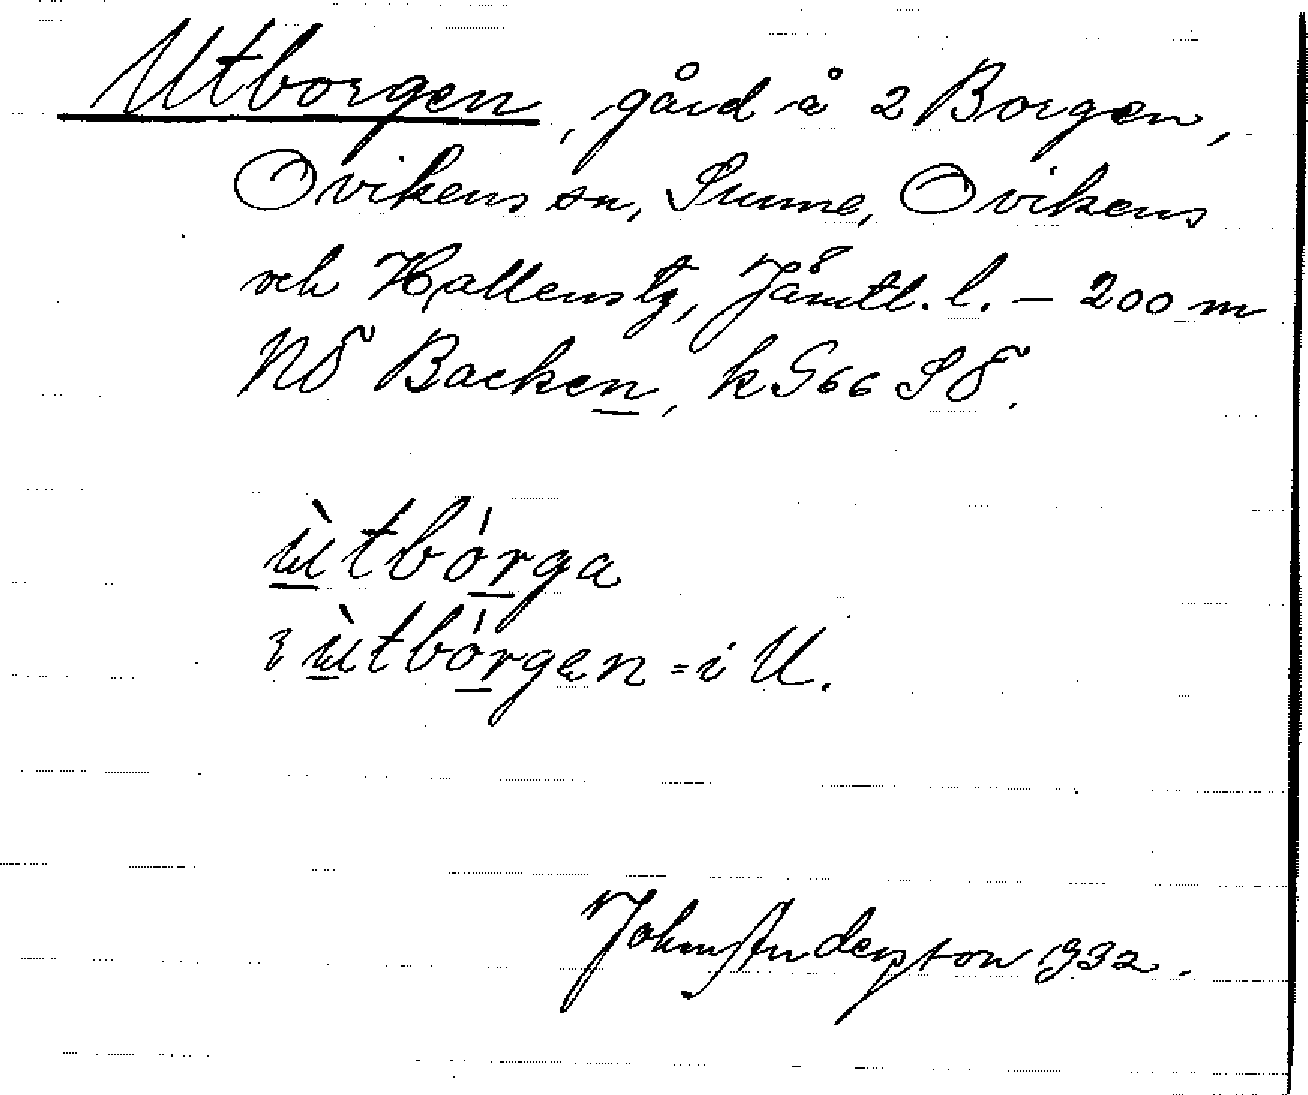 Utborgen, gård å 2 Borgen,
Ovikens sn, Sunne, Ovikens
och Hallens tg, Jämtl. l. – 200 m
NÖ Backen, k G66 SÖ.
ùtbórga
i ùtbórgen = i U.
John Anderston 1932.